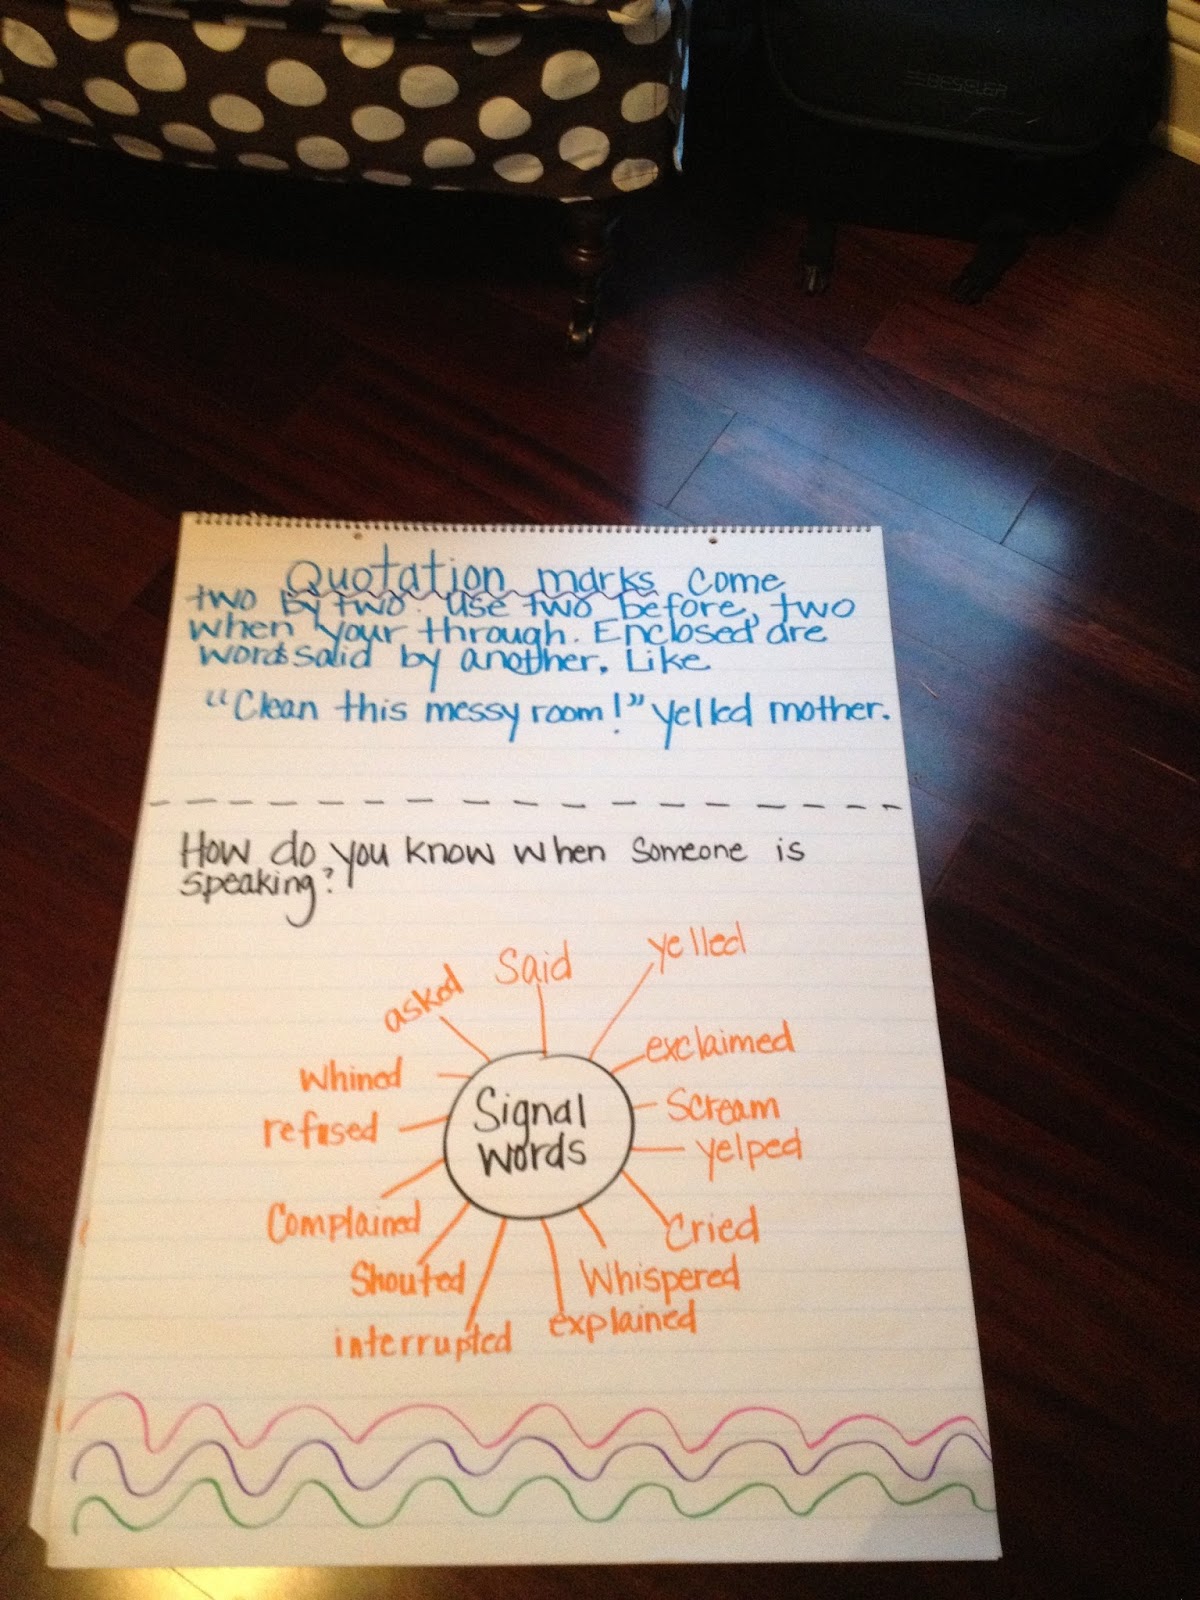 BESELER
Quotation marks come
two by two. Use two before, two
when your through. Enclosed are
words said by another. Like
“Clean this messy room!” yelled mother.
How do you know when someone is
speaking?
Said
yelled
asked
exclaimed
Whined
Scream
refused
Signal
words
yelped
Complained
Cried
Shouted
Whispered
interrupted
explained